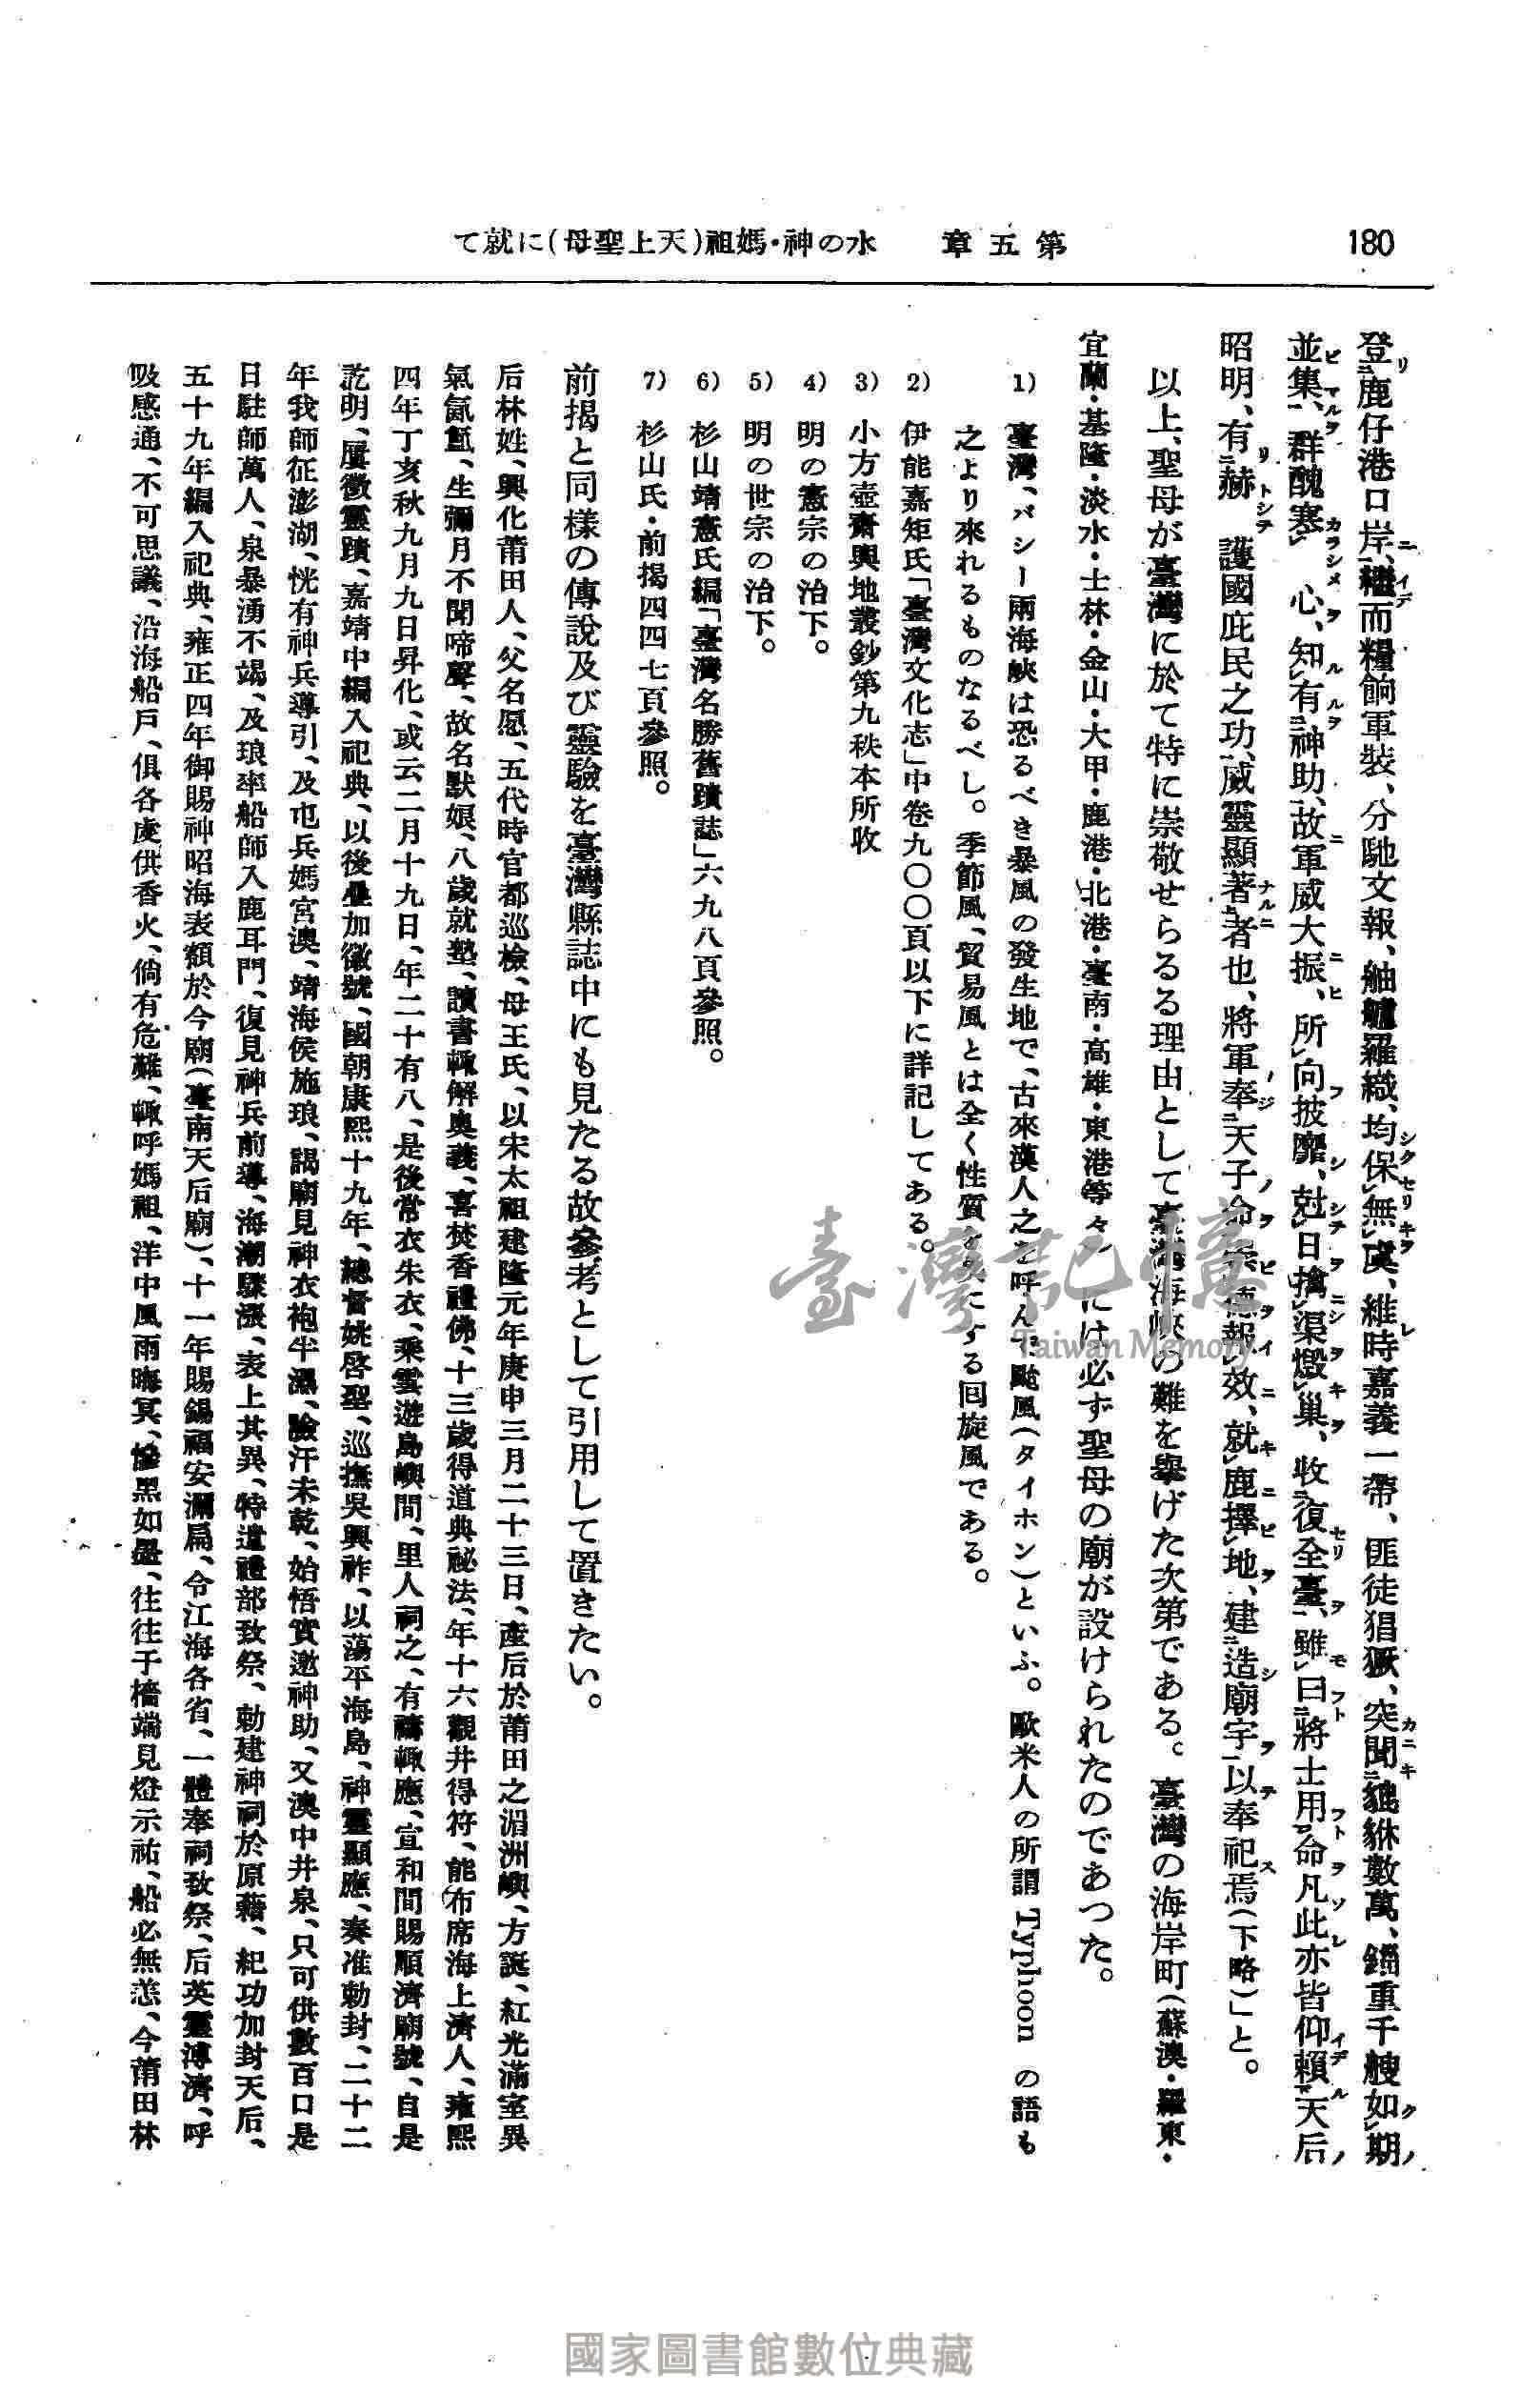 180
第五章　水の神・媽祖(天上聖母)に就て
登鹿仔港口岸、繼而糧餉軍裝、分馳文報、舳艫羅織、均保無虞、維時嘉義一帶、匪徒猖獗、突聞貔貅數萬、錙重千艘如期
並集、群醜寒心、知有神助、故軍威大振、所向披靡、尅日擒渠燬巢、收復全臺、雖曰將士用命凡此亦皆仰賴天后
昭明、有赫護國庇民之功、威靈顯著者也、將軍奉天子命崇德報效、就鹿擇地、建造廟宇以奉祀焉(下略)」と。
以上、聖母が臺灣に於て特に崇敬せらるる理由として臺灣海峽の難を擧げた次第である。臺灣の海岸町(蘇澳・羅東・
宜蘭・基隆・淡水・士林・金山・大甲・鹿港・北港・臺南・高雄・東港等々)には必ず聖母の廟が設けられたのであつた。
1) 臺灣、バシー兩海峽は恐るべき暴風の發生地で、古來漢人之を呼んで颱風(タイホン)といふ。歐米人の所謂 Typhoon の語も
之より來れるものなるべし。季節風、貿易風とは全く性質を異にする回旋風である。
2) 伊能嘉矩氏「臺灣文化志」中卷九〇〇頁以下に詳記してある。
3) 小方壺齋輿地叢鈔第九秩本所收
4) 明の憲宗の治下。
5) 明の世宗の治下。
6) 杉山靖憲氏編「臺灣名勝舊蹟誌」六九八頁參照。
7) 杉山氏・前揭四四七頁參照。
前揭と同樣の傳說及び靈驗を臺灣縣誌中にも見たる故參考として引用して置きたい。
后林姓、興化莆田人、父名愿、五代時官都巡檢、母王氏、以宋太祖建隆元年庚申三月二十三日、產后於莆田之湄洲嶼、方誕、紅光滿室異
氣氤氳、生彌月不聞啼聲、故名默娘、八歲就塾、讀書輒解奧義、喜焚香禮佛、十三歲得道典祕法、年十六觀井得符、能布席海上濟人、雍熙
四年丁亥秋九月九日昇化、或云二月十九日、年二十有八、是後常衣朱衣、乘雲遊島嶼間、里人祠之、有禱輒應、宣和間賜順濟廟號、自是
訖明、屢徵靈蹟、嘉靖中編入祀典、以後疊加徽號、國朝康熙十九年、總督姚啓聖、巡撫吳興祚、以蕩平海島、神靈顯應、奏准勅封、二十二
年我師征澎湖、恍有神兵導引、及屯兵媽宮澳、靖海侯施琅、謁廟見神衣袍半濕、臉汗未乾、始悟實邀神助、又澳中井泉、只可供數百口是
日駐師萬人、泉暴湧不竭、及琅率船師入鹿耳門、復見神兵前導、海潮驟漲、表上其異、特遣禮部致祭、勅建神祠於原籍、紀功加封天后、
五十九年編入祀典、雍正四年御賜神昭海表額於今廟(臺南天后廟)、十一年賜錫福安瀾扁、令江海各省、一體奉祠致祭、后英靈溥濟、呼
吸感通、不可思議、沿海船戶、俱各虔供香火、倘有危難、輒呼媽祖、洋中風雨晦冥、慘黑如墨、往往于檣端見燈示祐、船必無恙、今莆田林
臺灣記憶
Taiwan Memory
國家圖書館數位典藏